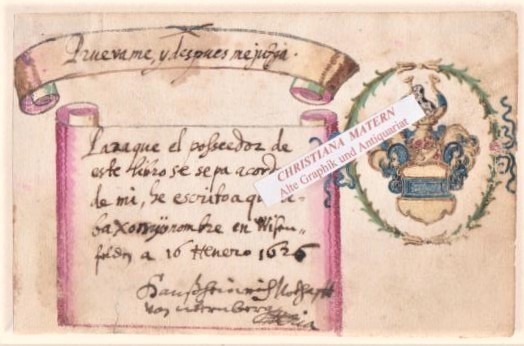 Pruevame, y despues me juzga.
Paraque el possee​dor de
este libro se sepa acord
de mi, he escrito aqui
baxo mio nombre en
a 16 Henero 1626
von
CHRISTIANA MATERN
Alte Graphik und Antiquariat